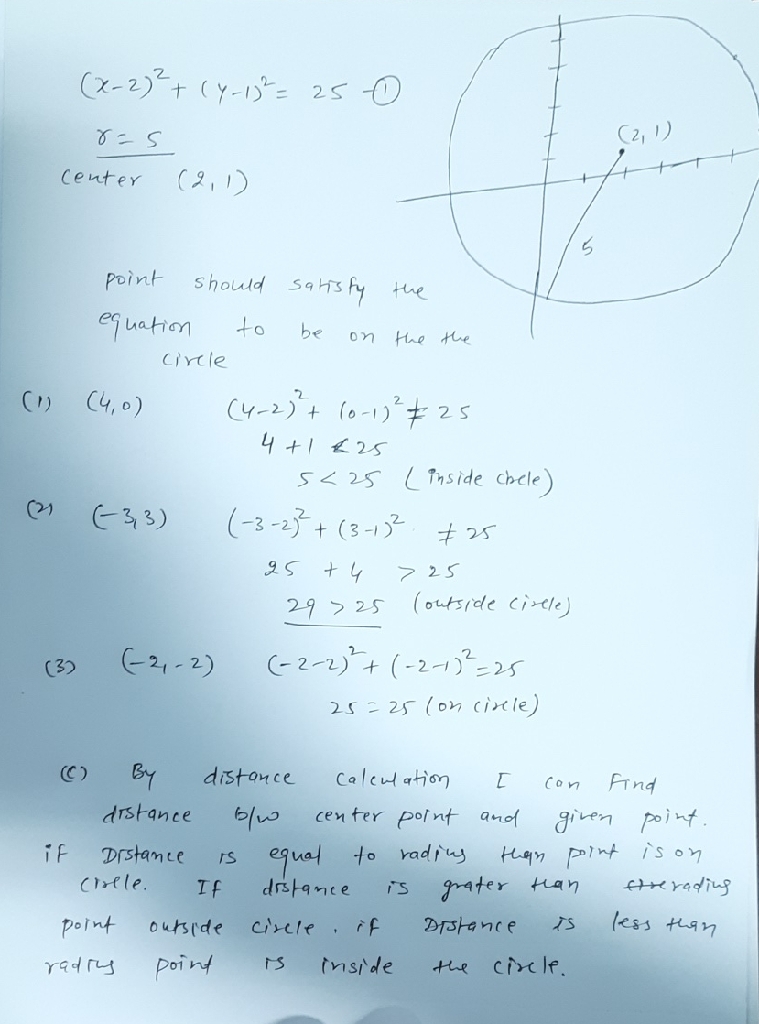 (x-2)² + (y-1)² = 25 -①
r = 5
center (2,1)
(2,1)
5
point should satisfy the
equation to be on the the
circle
(1) (4,0) (4-2)² + (0-1)² ≠ 25
4 + 1 < 25
5 < 25 (inside circle)
(2) (-3,3) (-3-2)² + (3-1)² ≠ 25
25 + 4 > 25
29 > 25 (outside circle)
(3) (-2,-2) (-2-2)² + (-2-1)² = 25
25 = 25 (on circle)
(C) By distance calculation I can Find
distance b/w center point and given point.
if Distance is equal to radius than point is on
circle. If distance is grater than radius
point outside circle. if Distance is less than
radius point is inside the circle.